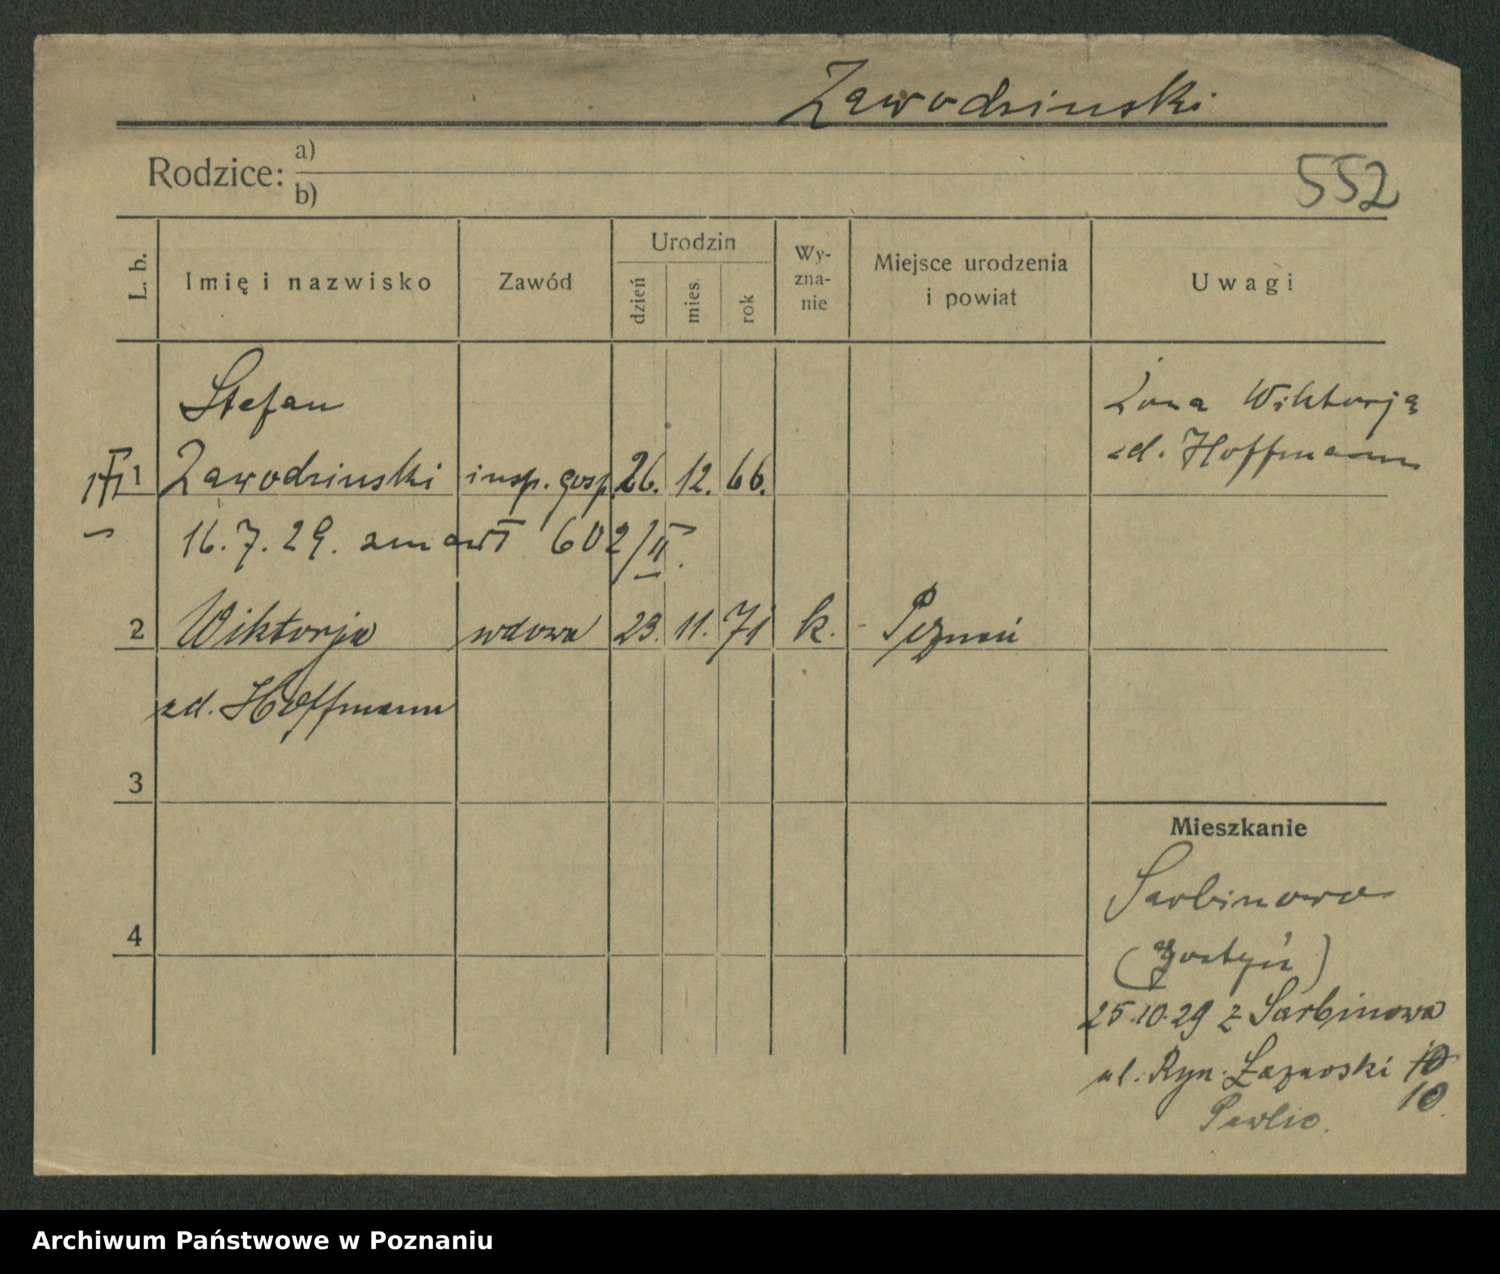 Zawodzinski
Rodzice: a)
b)
552
L. b.
Imię i nazwisko
Zawód
Urodzin
dzień
mies.
rok
Wy-
zna-
nie
Miejsce urodzenia
i powiat
Uwagi
Stefan
Żona Wiktorją
zd. Hoffmann
1 Zawodzinski insp. gosp. 26. 12. 66.
16. 7. 29. zmarł 602/II.
2 Wiktorja wdowa 23. 11. 71 k. - Poznań
zd. Hoffmann
3
Mieszkanie
Sarbinowo
4
(Gostyń)
25.10.29 z Sarbinowa
ul. Ryn. Łazarski 10
10
Archiwum Państwowe w Poznaniu